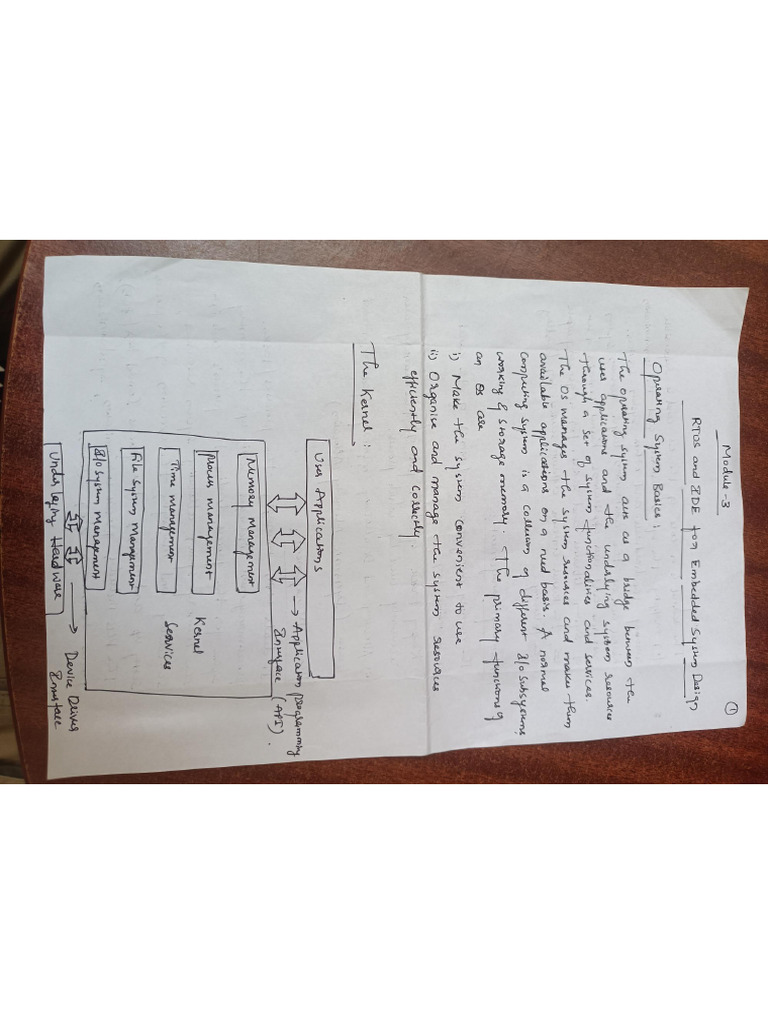 1
Module-3
RTOS and IDE for Embedded System Design
Operating System Basics :
The operating system acts as a bridge between the
user applications and the underlying system resources
through a set of system functionalities and services.
The OS manages the system resources and makes them
available applications on a need basis. A normal
computing system is a collection of different I/o subsystems,
working & storage memory. The primary functions of
an OS are
i) Make the system convenient to use
ii) Organise and manage the system resources
efficiently and correctly.
The Kernel :
User Applications
→ Application programming
Interface (API).
Memory Management
Process management
Kernel
Time management
Services
File System Management
I/o System Management
→ Device Driver
Interface
Underlying Hardware